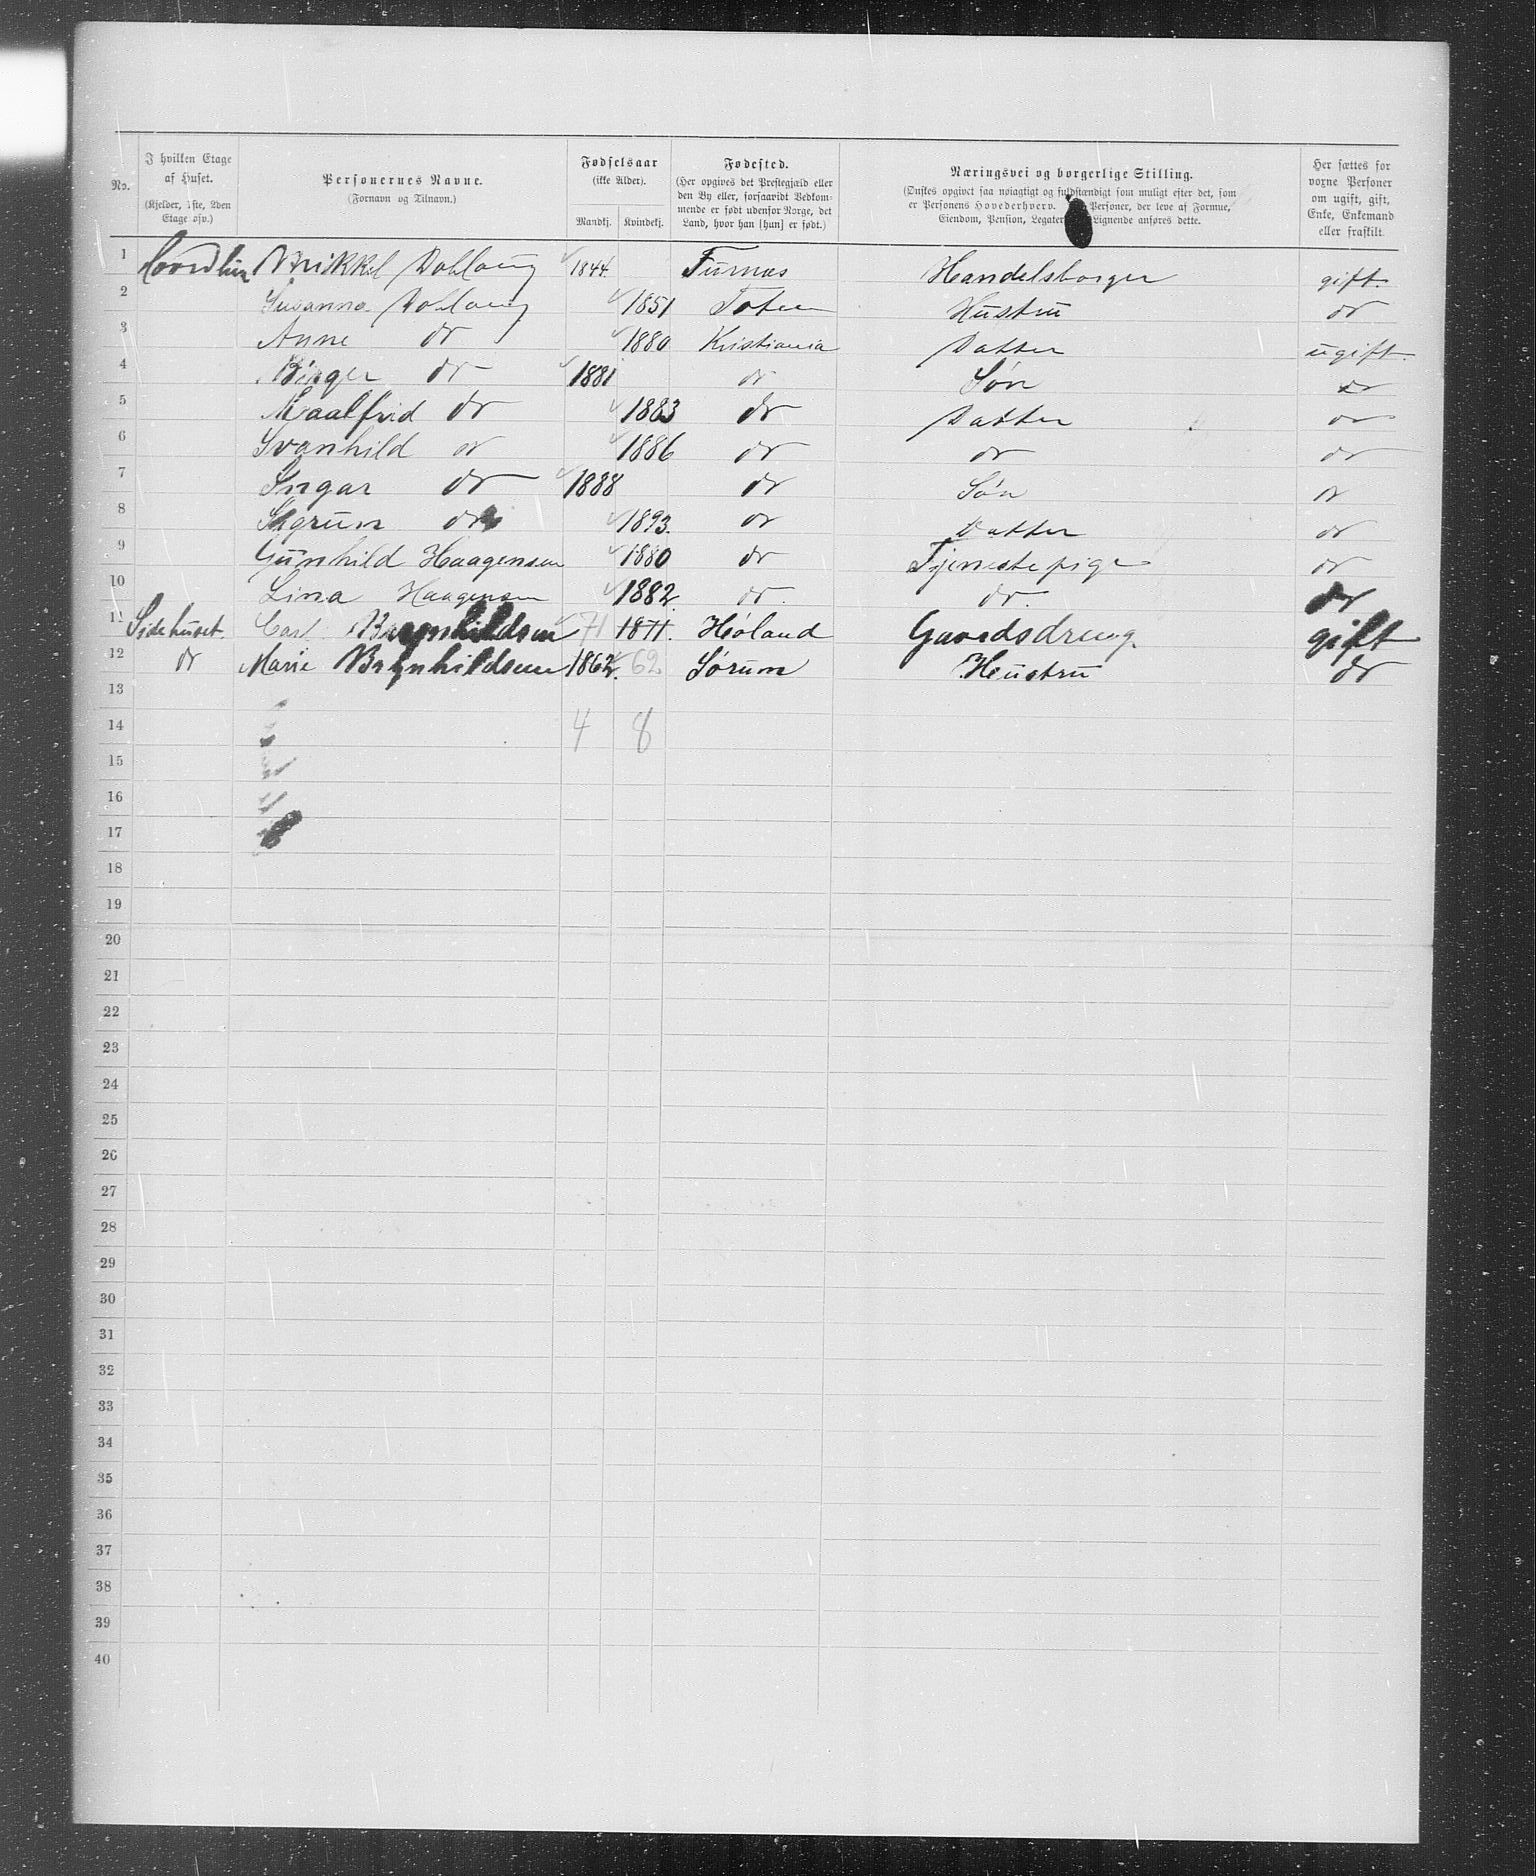 No. I hvilken Etage af Huset. (Kjelder, 1ste, 2den Etage osv.) Personernes Navne. (Fornavn og Tilnavn.) Fødselsaar (ikke Alder). Mandkj. Kvindekj. Fødested. (Her opgives det Prestegjæld eller den By eller, forsaavidt Vedkommende er født udenfor Norge, det Land, hvor han [hun] er født.) Næringsvei og borgerlige Stilling. (Ønskes opgivet saa nøiagtigt og fuldstændigt som muligt efter det, som er Personens Hovederhverv. Personer, der leve af Formue, Eiendom, Pension, Legater Lignende anføres dette. Her sættes for voxne Personer om ugift, gift, Enke, Enkemand eller fraskilt.
1 Mikkel Dohloug 1844 Furnæs Handelsborger gift.
2 Susanna Dohloug 1851 Toten Hustru do
3 Anne do 1880 Kristiania Datter ugift.
4 Birger do 1881 do Søn do
5 Maalfrid do 1883 do Datter do
6 Svanhild do 1886 do do do
7 Ingar do 1888 do Søn do
8 Sigrun do 1893. do Datter do
9 Gunhild Haagensen 1880 do Tjenestepige do
10 Lina Haagensen 1882. do. do. do
11 Sidehuset. Carl Brynhildsen 71 1871. Høland Gaardsdreng. gift
12 do Marie Brynhildsen 1862. 62 Sørum Heustru do
13
14 4 8
15
16
17
18
19
20
21
22
23
24
25
26
27
28
29
30
31
32
33
34
35
36
37
38
39
40